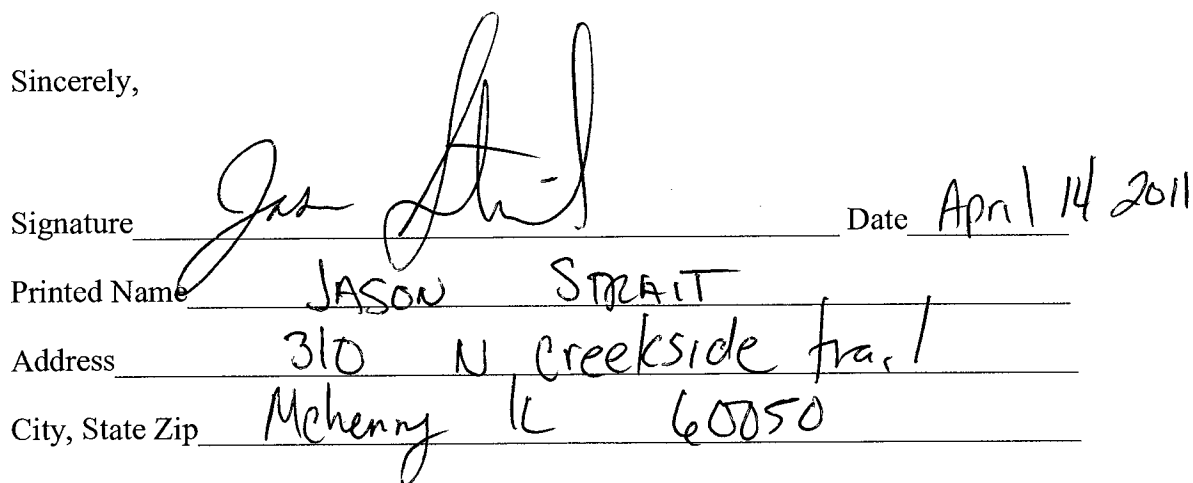 Sincerely,
Signature Jason Strait Date April 14 2011
Printed Name JASON STRAIT
Address 310 N Creekside trail
City, State Zip Mchenry IL 60050